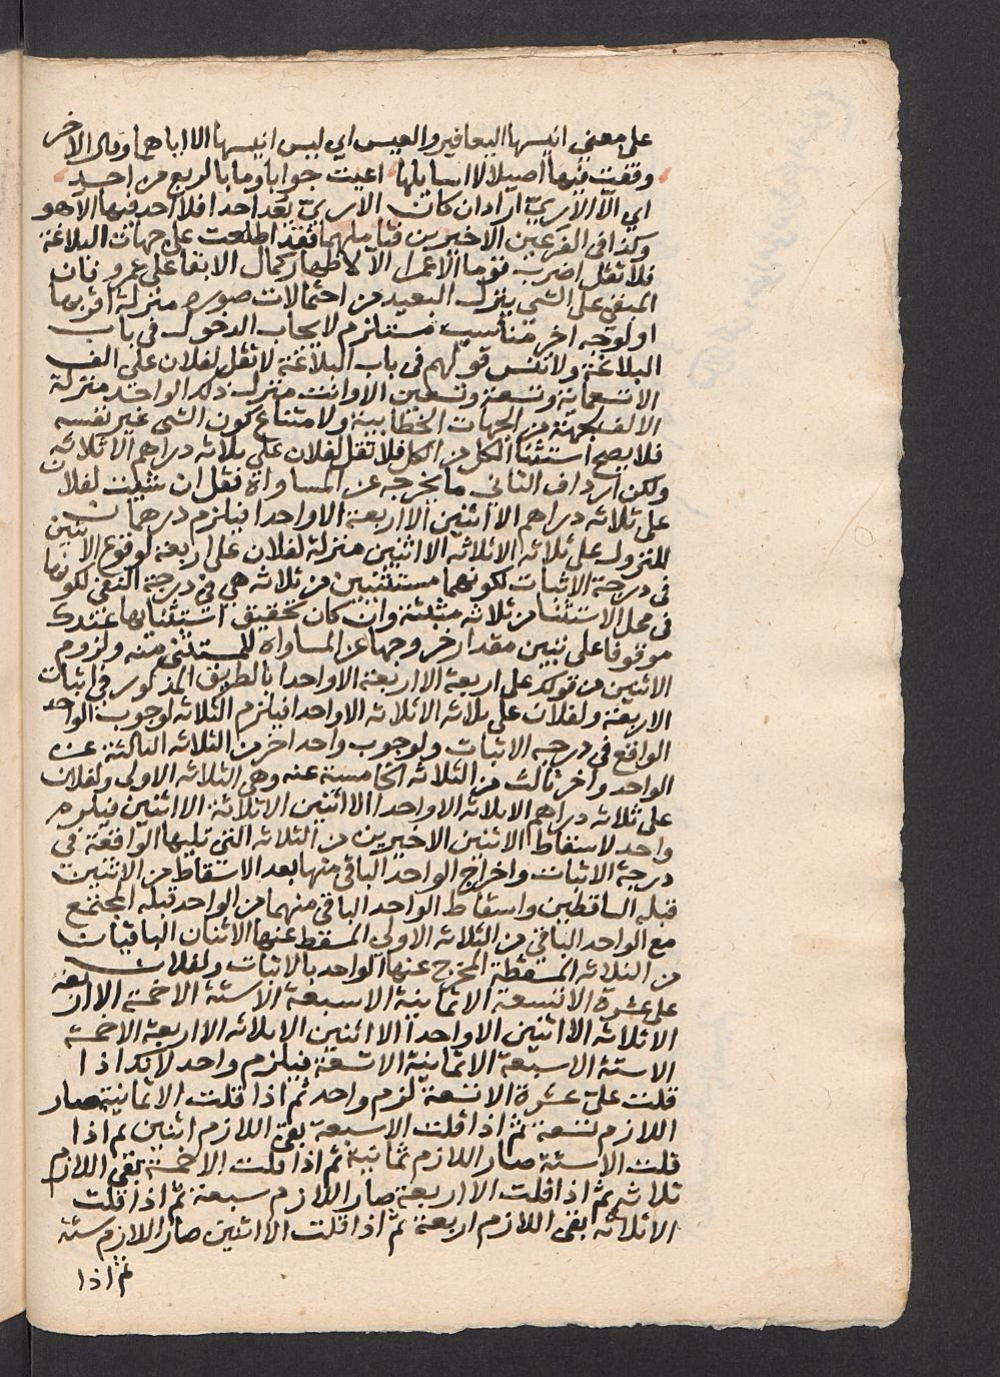 على معنى انيسها اليعافير والعيس اي ليس انيسها الا اياهما وقال الاخر
وقفت فيها اصيلالا اسايلها اعيت جوابا وما بالربع من احد
اي الا الاريّ اراد ان كان الاريّ يعد احدا فلا احد فيها الا هو
وكذا في الفرعين الاخيرين فتاملهما فقد اطلعت على جهات البلاغة
فلا تقل اضرب قوما الا عمرا الا لاظهار كمال الابقا على عمرو فان
المبقي على الشي ينزل البعيد من احتمالات صوره منزلة اقربها
او لوجه اخر مناسب مستلزم لايجاب الدخول في باب
البلاغة ولا تنس قولهم في باب البلاغة لا تقل لفلان على الف
الا تسعمائة وتسعة وتسعين الا وانت منزل ذلك الواحد منزلة
الالف بجهة من الجهات الخطابية ولامتناع كون الشى غير نفسه
فلا يصح استثنا الكل من الكل فلا تقل لفلان على ثلاثه دراهم الا ثلاثه
ولكن ارداف الثاني ما يخرجه عن المساواة فقل ان شئت لفلان
على ثلاثه دراهم الا اثنين الا اربعة الا واحدا فيلزم درهمان
للنزول على ثلاثه الا ثلاثه الا اثنين منزلة لفلان على اربعة لوقوع الاثنين
في درجة الاثبات لكونهما مستثنيين من ثلاثه هي في درجة النفي لكونها
في محل الاستثنا من ثلاثه مثبتة وان كان تحقيق استثنائها عندك
موقوفا على تبين مقدار خروجها عن المساواة للمستثنى منه ولزوم
الاثنين من قولك على اربعة الا اربعة الا واحدا بالطريق المذكور في اثبات
الاربعة ولفلان على ثلاثه الا ثلاثه الا واحدا فيلزم الثلاثه لوجوب الواحد
الواقع في درجه الاثبات ولوجوب واحد اخر من الثلاثه الثالثة عن
الواحد واخر ثالث من الثلاثه الخامسة عنه وهي الثلاثه الاولى ولفلان
على ثلاثه دراهم الا ثلاثه الا واحدا الا اثنين الا ثلاثة الا اثنين فيلزم
واحد لاسقاط الاثنين الاخيرين من الثلاثه التي تليها الواقعة في
درجة الاثبات واخراج الواحد الباقي منها بعد الاسقاط من الاثنين
قبله الساقطين واسقاط الواحد الباقي منهما من الواحد قبله المجتمع
مع الواحد الباقي من الثلاثه الاولى المسقط عنها الاثنان الباقيان
من الثلاثه المسقطة المخرج عنها الواحد بالاثبات ولفلان
على عشرة الا تسعة الا ثمانية الا سبعة الا ستة الا خمسة الا اربعة
الا ثلاثه الا اثنين الا واحدا الا اثنين الا ثلاثه الا اربعة الا خمسة
الا ستة الا سبعة الا ثمانية الا تسعة فيلزم واحد لانك اذا
قلت علىّ عشرة الا تسعة لزم واحد ثم اذا قلت الا ثمانية صار
اللازم تسعة ثم اذا قلت الا سبعة بقي اللازم اثنين ثم اذا
قلت الا ستة صار اللازم ثمانية ثم اذا قلت الا خمسة بقي اللازم
ثلاثه ثم اذا قلت الا اربعة صار اللازم سبعة ثم اذا قلت
الا ثلاثه بقى اللازم اربعة ثم اذا قلت الا اثنين صار اللازم ستة
ثم اذا